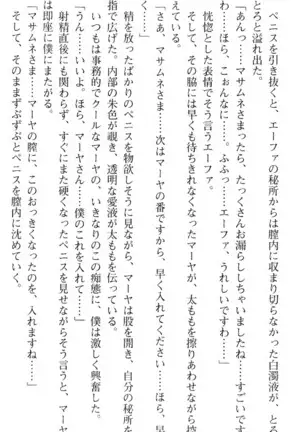 ペニスを引き抜くと、エーファの秘所からは膣内に収まり切らなかった白濁液が、とろ
とろと溢れ出た。
「あんっ……マサムネさまったら、たっくさんお漏らししちゃいましたね……すごいです
わ……ほら、こぉんなに……。ふふっ……エーファ、うれしいですわ……」
恍惚とした表情でそう言うエーファ。
そして、その脇には早くも待ちきれなくなったマーヤが、太ももを擦りあわせながら控
えている。
「さぁ、マサムネさま……次はマーヤの番ですから、早く入れてください……ほら、早
精を放ったばかりのペニスを物欲しそうに見ながら、マーヤは股を開き、自分の秘所を
指で広げた。内部の朱色が覗き、透明な愛液が太ももを伝っている。
いつもは事務的でクールなマーヤの、いきなりのこの痴態に、僕は激しく興奮した。
「うん……いいよ。ほら、マーヤさん……僕のこれを入れて……」
射精直後にも関わらず、すぐにまた硬くなったペニスを見せながらそう言うと、マーヤ
は即座に僕にまたがる。
「マサムネさま……マーヤの膣に、このおっきくなったのを、入れますね……」
そして、そのままずぶずぶとペニスを膣内に沈めていく。